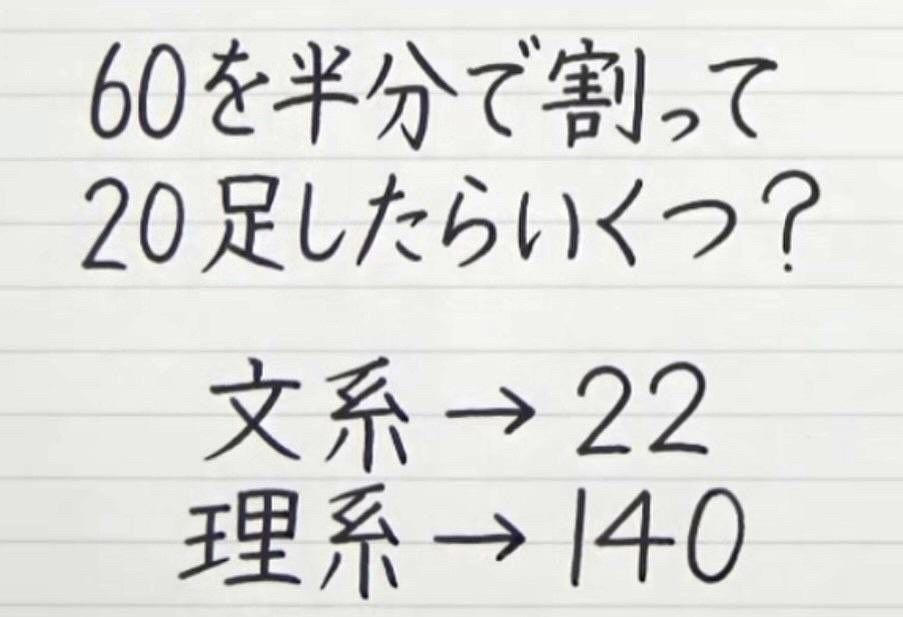 60を半分で割って
20足したらいくつ?
文系→22
理系→140